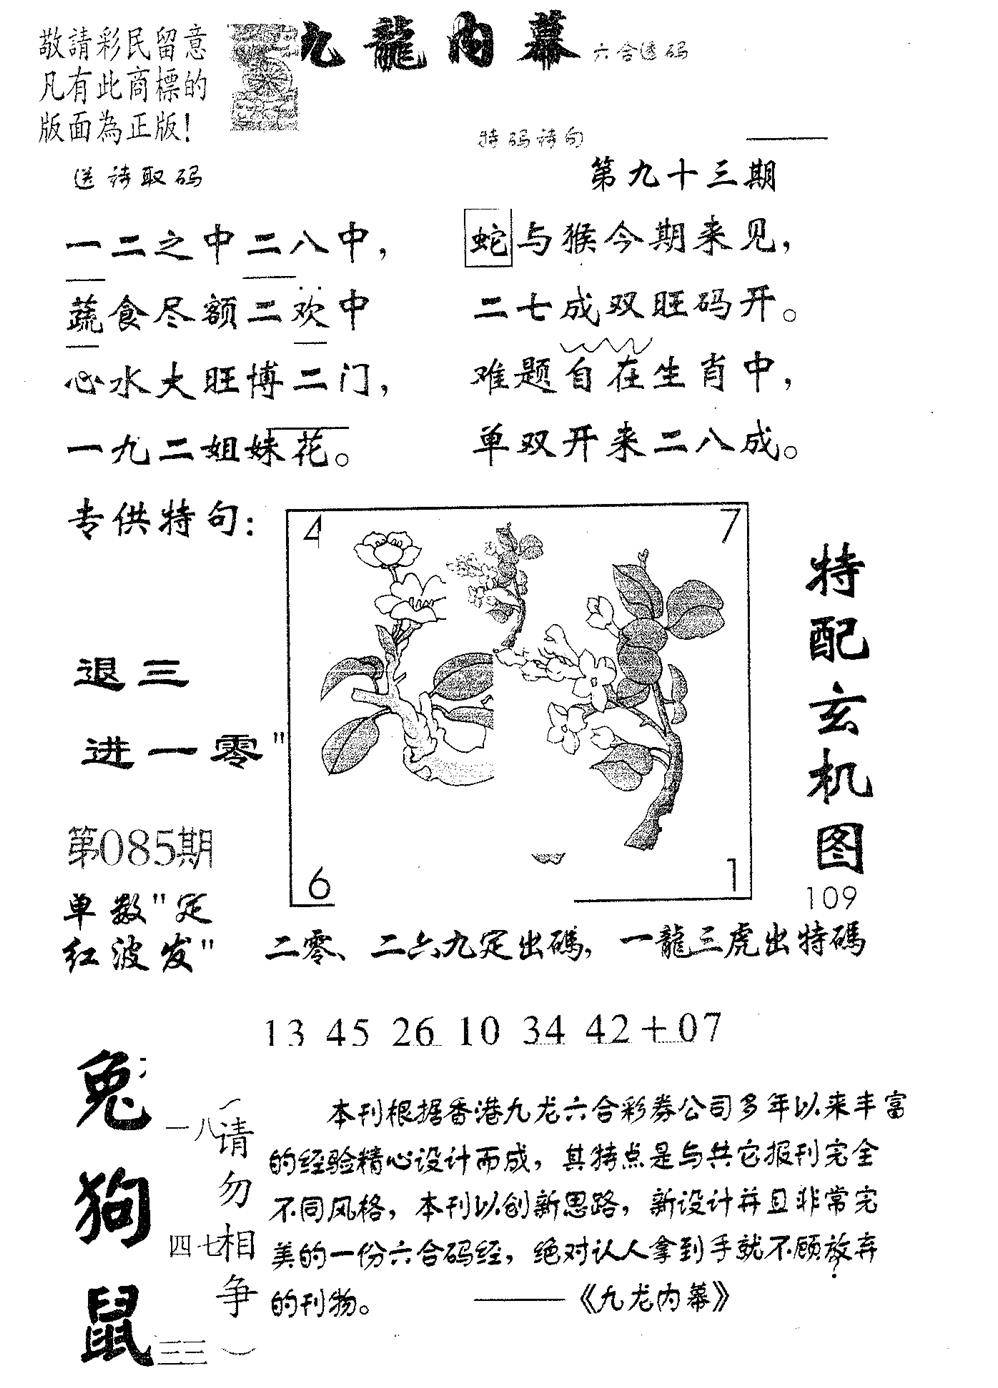 敬請彩民留意
凡有此商標的
版面為正版!
九龍内幕 六合透码
特码诗句
送诗取码
第九十三期
一二之中二八中,
蔬食尽额二欢中
心水大旺博二门,
一九二姐妹花。
蛇与猴今期来见,
二七成双旺码开。
难题自在生肖中,
单双开来二八成。
专供特句:
退三
进一零"
4
7
6
1
特配玄机图
109
第085期
单数"定
红波发"
二零、二六九定出碼,一龍三虎出特碼
13 45 26 10 34 42+07
兔狗鼠
一八
四七
三三
(请勿相争)
本刊根据香港九龙六合彩券公司多年以来丰富
的经验精心设计而成,其特点是与其它报刊完全
不同风格,本刊以创新思路,新设计并且非常完
美的一份六合码经,绝对认人拿到手就不愿放弃
的刊物。 ——《九龙内幕》